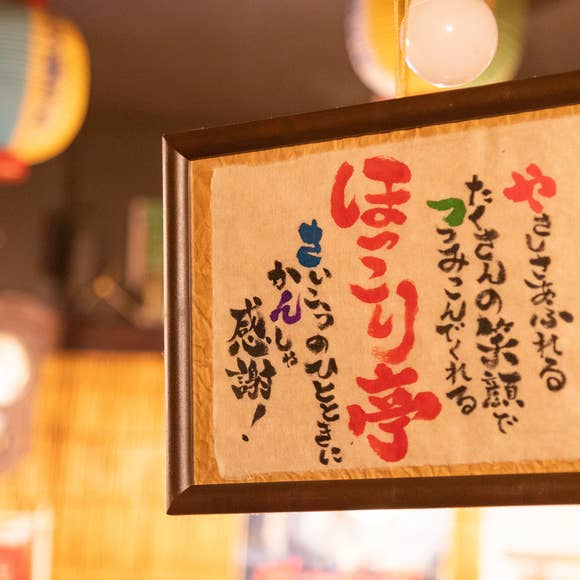 やさしさあふれる
たくさんの笑顔で
つつみこんでくれる
ほっこり亭
さいこうのひとときに
かんしゃ
感謝！